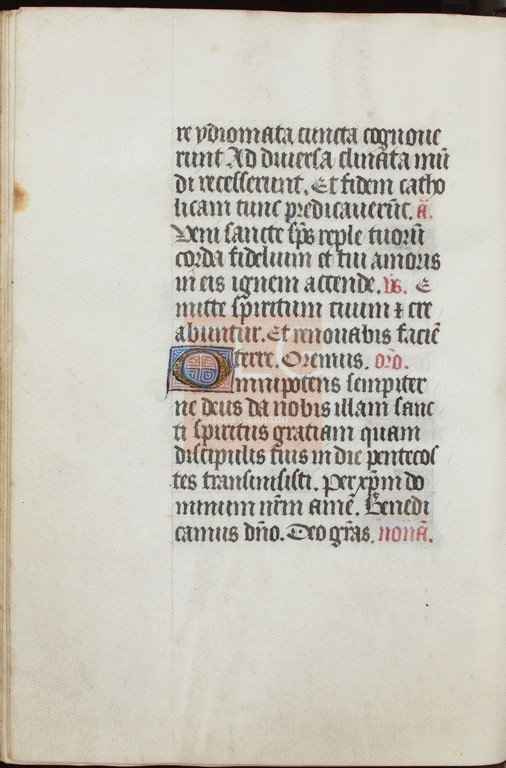 re ydiomata cuncta cognoue
runt Ad diuersa climata mū
di recesserunt. Et fidem catho
licam tunc predicauerūt. a̅.
Veni sancte sp̅s reple tuorū
corda fidelium et tui amoris
in eis ignem accende. v̅s. E
mitte spiritum tuum ⁊ cre
abuntur. Et renouabis faciē
terre. Oremus. or̅o.
Omnipotens sempiter
ne deus da nobis illam sanc
ti spiritus gratiam quam
discipulis tuis in die pentecos
tes transmisisti. Per xp̅m do
minum nr̅m amē. Benedi
camus dn̅o. Deo gr̅as. nonā.